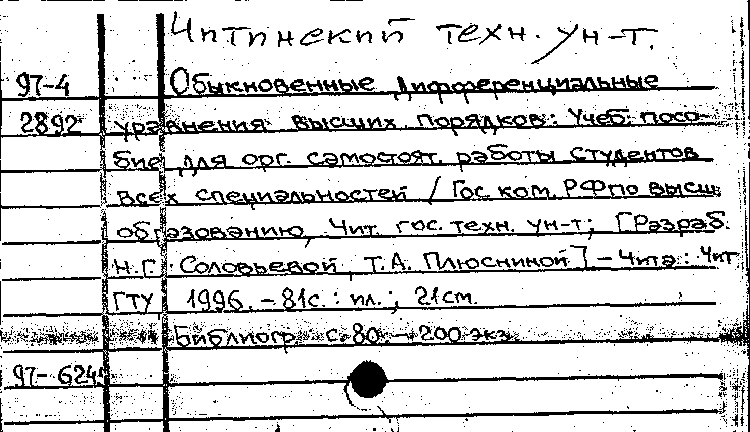 Читинский техн. ун-т.
97-4 Обыкновенные дифференциальные
2892 уравнения высших порядков: Учеб. посо-
бие для орг. самостоят. работы студентов
всех специальностей / Гос. ком. РФ по высш.
образованию, Чит. гос. техн. ун-т; [Разраб.
Н.Г. Соловьевой, Т.А. Плюсниной] - Чита: Чит
ГТУ, 1996. - 81с.: ил.; 21см.
Библиогр. с. 80. - 200 экз.
97-624